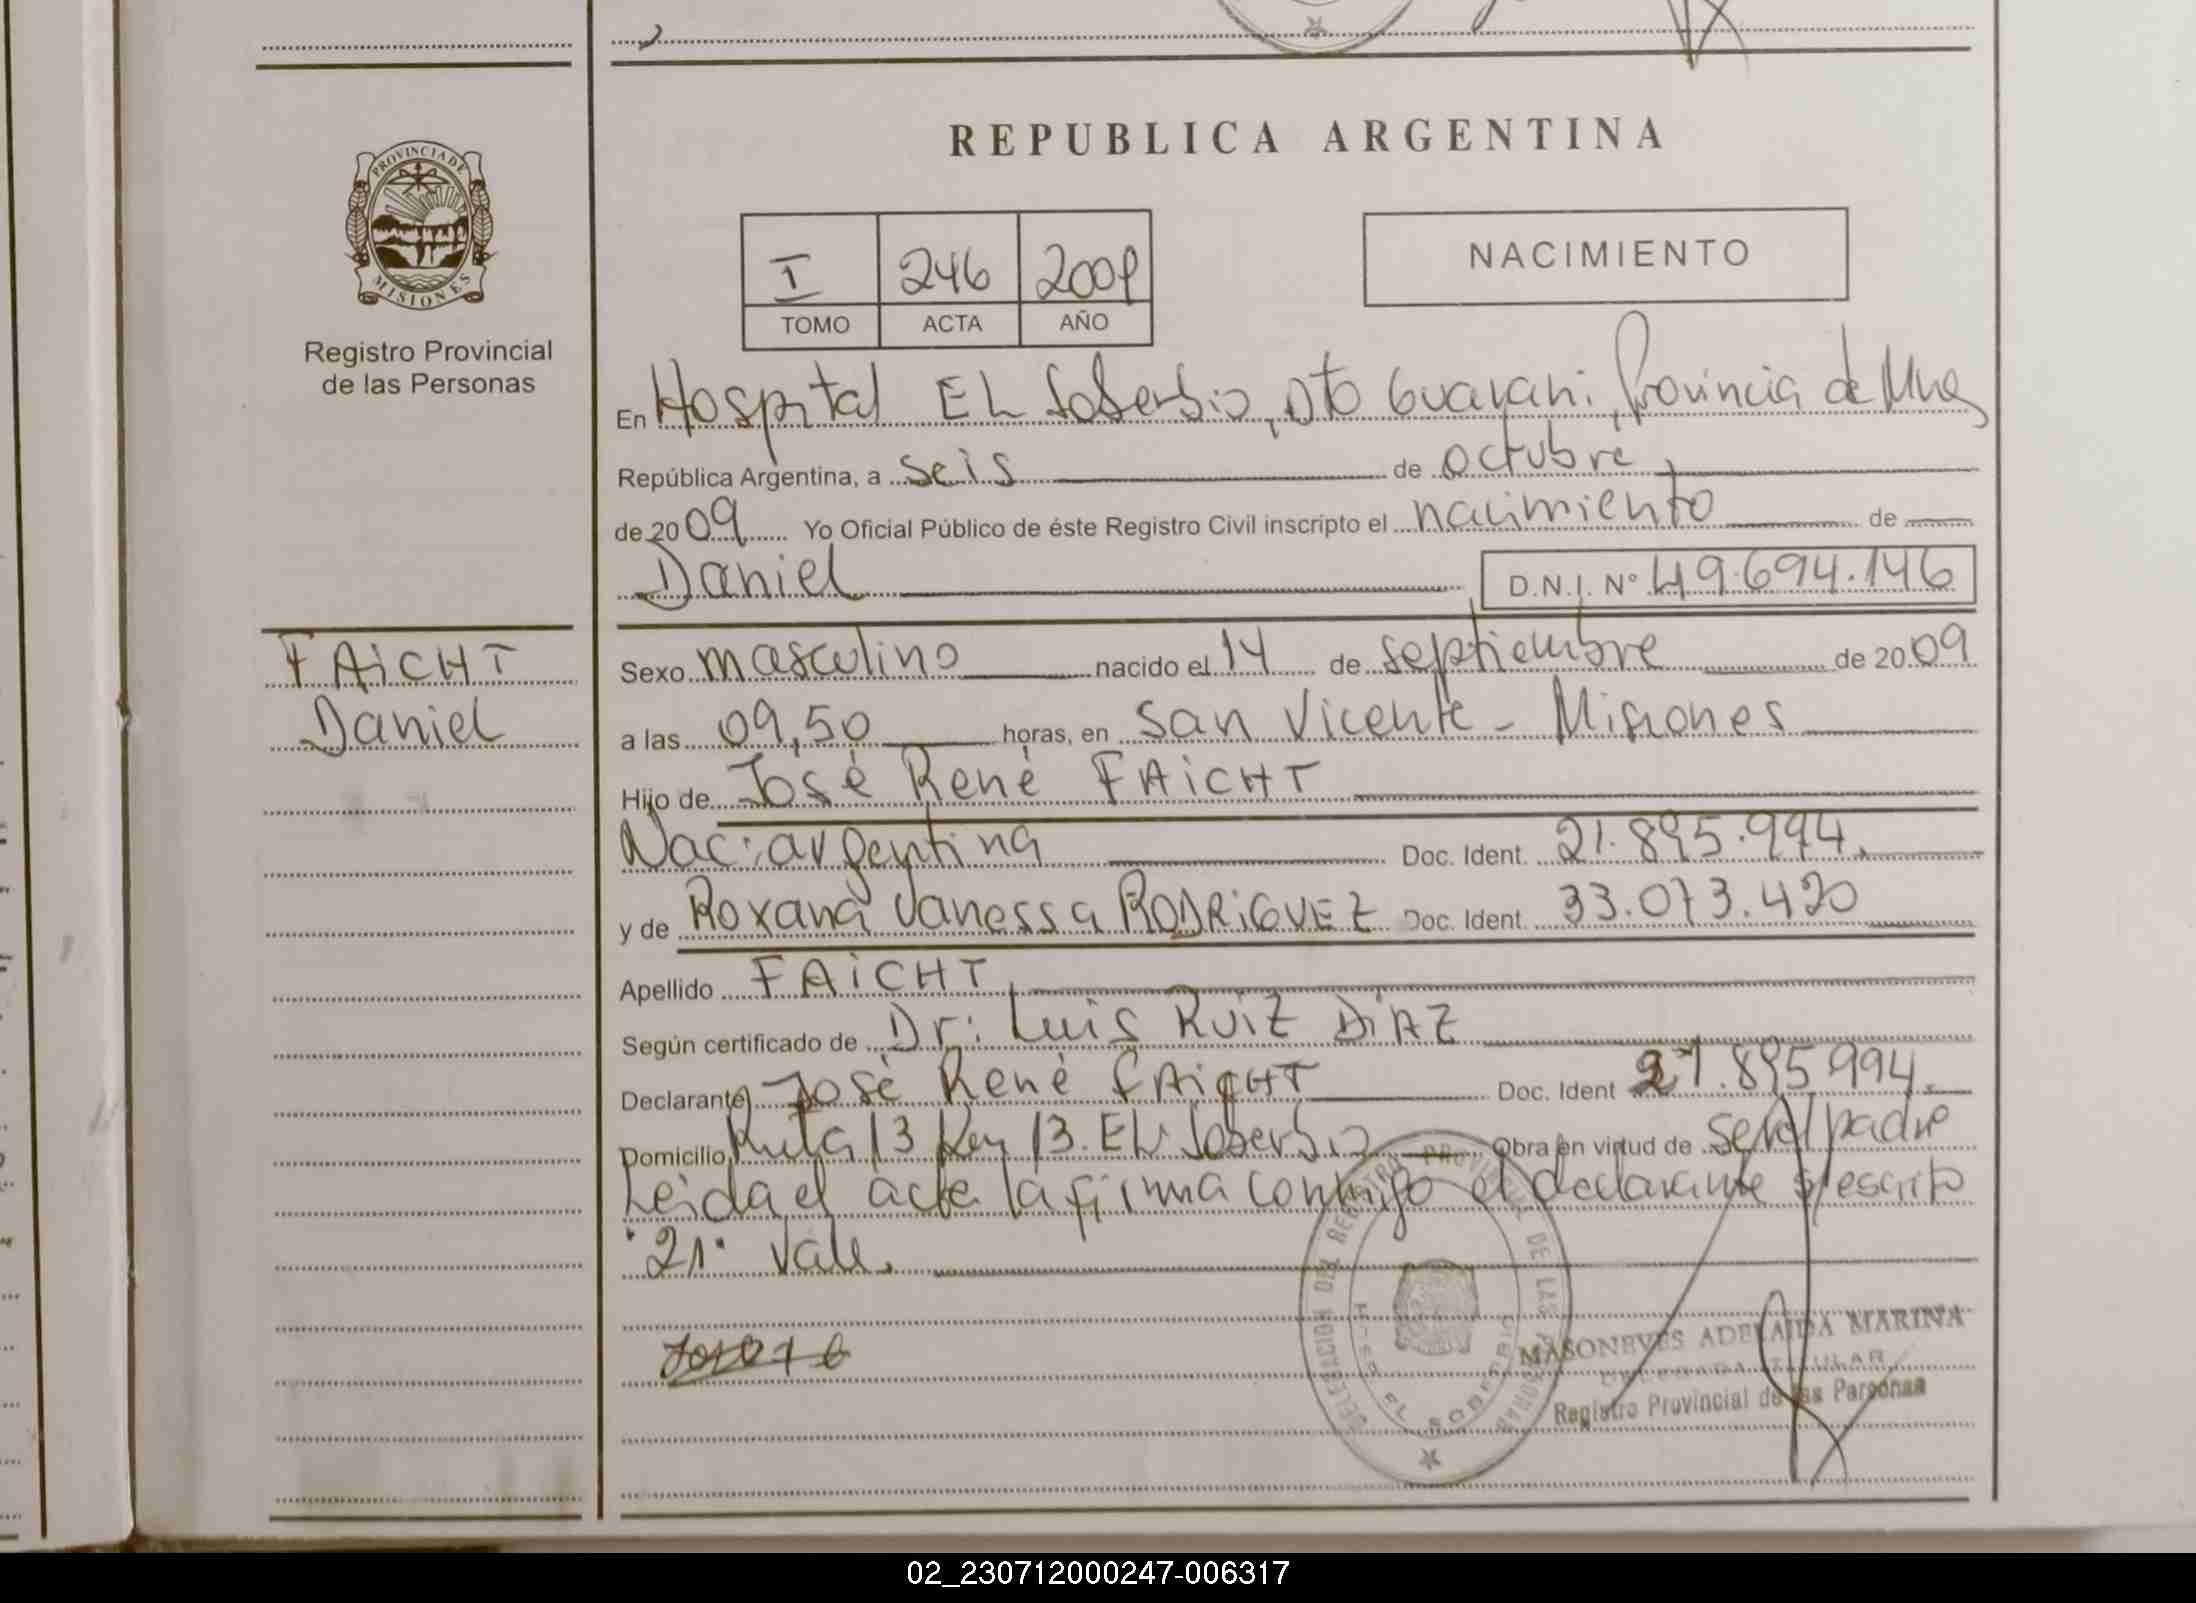 REPUBLICA ARGENTINA
PROVINCIA DE
MISIONES
Registro Provincial
de las Personas
I 246 2009
TOMO ACTA AÑO
NACIMIENTO
En Hospital EL Soberbio, Dto Guarani, Provincia de Mnes
República Argentina, a seis de octubre
de 2009 Yo Oficial Público de éste Registro Civil inscripto el nacimiento de
Daniel D.N.I. Nº 49.694.146
FAiCHT
Daniel
Sexo masculino nacido el 14 de septiembre de 2009
a las 09,50 horas, en San Vicente - Misiones
Hijo de José René FAiCHT
Nac: argentina Doc. Ident. 21.895.994.
y de Roxana Vanessa RODRiGUEZ Doc. Ident. 33.073.420
Apellido FAiCHT
Según certificado de Dr: Luis RUiZ DiAZ
Declarante José René FAiCHT Doc. Ident 21.895.994.
Domicilio Ruta 13 Km 13. EL Soberbio Obra en virtud de ser el padre
Leida el acta la firma conmigo el declarante s/escrito
"21" Vale.
DELEGACION DEL REGISTRO PROVINCIAL DE LAS PERSONAS
EL SOBERBIO
MASONEVES ADELAIDA MARINA
DELEGADA TITULAR
Registro Provincial de las Personas
02_230712000247-006317